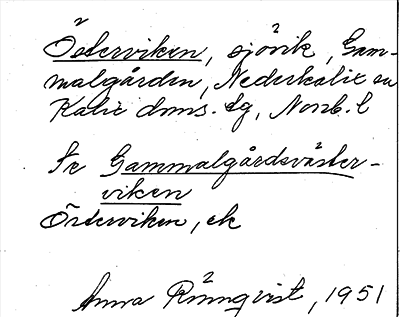 Österviken, sjövik, Gam-
malgården, Nederkalix sn
Kalix doms. tg, Norrb. l
Se Gammalgårdsväster-
viken
Österviken, ek
Anna Rönnqvist, 1951